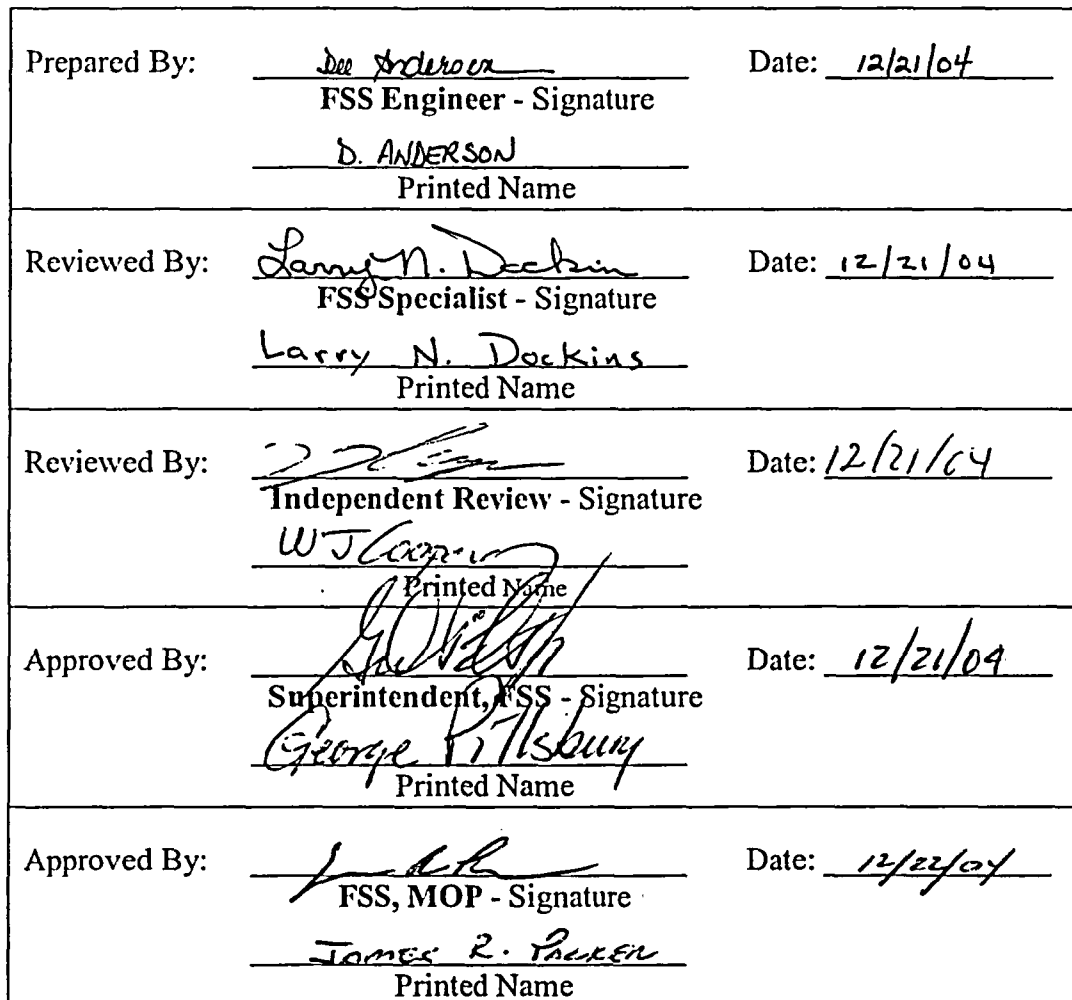 Prepared By: Dee Anderson Date: 12/21/04
FSS Engineer - Signature
D. ANDERSON
Printed Name
Reviewed By: Larry N. Dockin Date: 12/21/04
FSS Specialist - Signature
Larry N. Dockins
Printed Name
Reviewed By: Date: 12/21/04
Independent Review - Signature
W J Cooper
Printed Name
Approved By: Date: 12/21/04
Superintendent, FSS - Signature
George Pillsbury
Printed Name
Approved By: Date: 12/22/04
FSS, MOP - Signature
James R. Packer
Printed Name